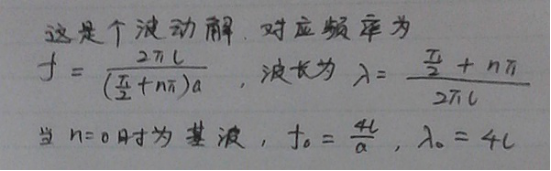 这是个波动解. 对应频率为
f = \frac{2πl}{(\frac{π}{2}+nπ)a} , 波长为 λ = \frac{\frac{π}{2}+nπ}{2πl}
当 n=0时为基波, f₀ = \frac{4l}{a}, λ₀ = 4l